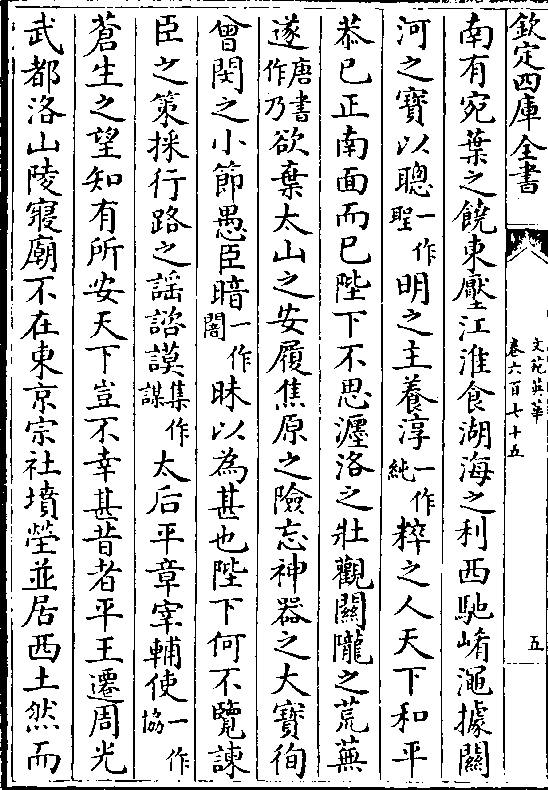 欽定四庫全書
文苑英華
卷六百七十五
五
南有宛葉之饒東壓江淮食湖海之利西馳崤澠據關
河之寶以聰一作聖明之主養淳一作純粹之人天下和平
恭已正南面而已陛下不思瀍洛之壯觀關隴之荒蕪
遂唐書作乃欲棄太山之安履焦原之險忘神器之大寶徇
曾閔之小節愚臣暗一作闇昧以為甚也陛下何不覽諫
臣之策採行路之謡諮謨集作謀太后平章宰輔使一作協
蒼生之望知有所安天下豈不幸甚昔者平王遷周光
武都洛山陵寢廟不在東京宗社墳塋並居西土然而